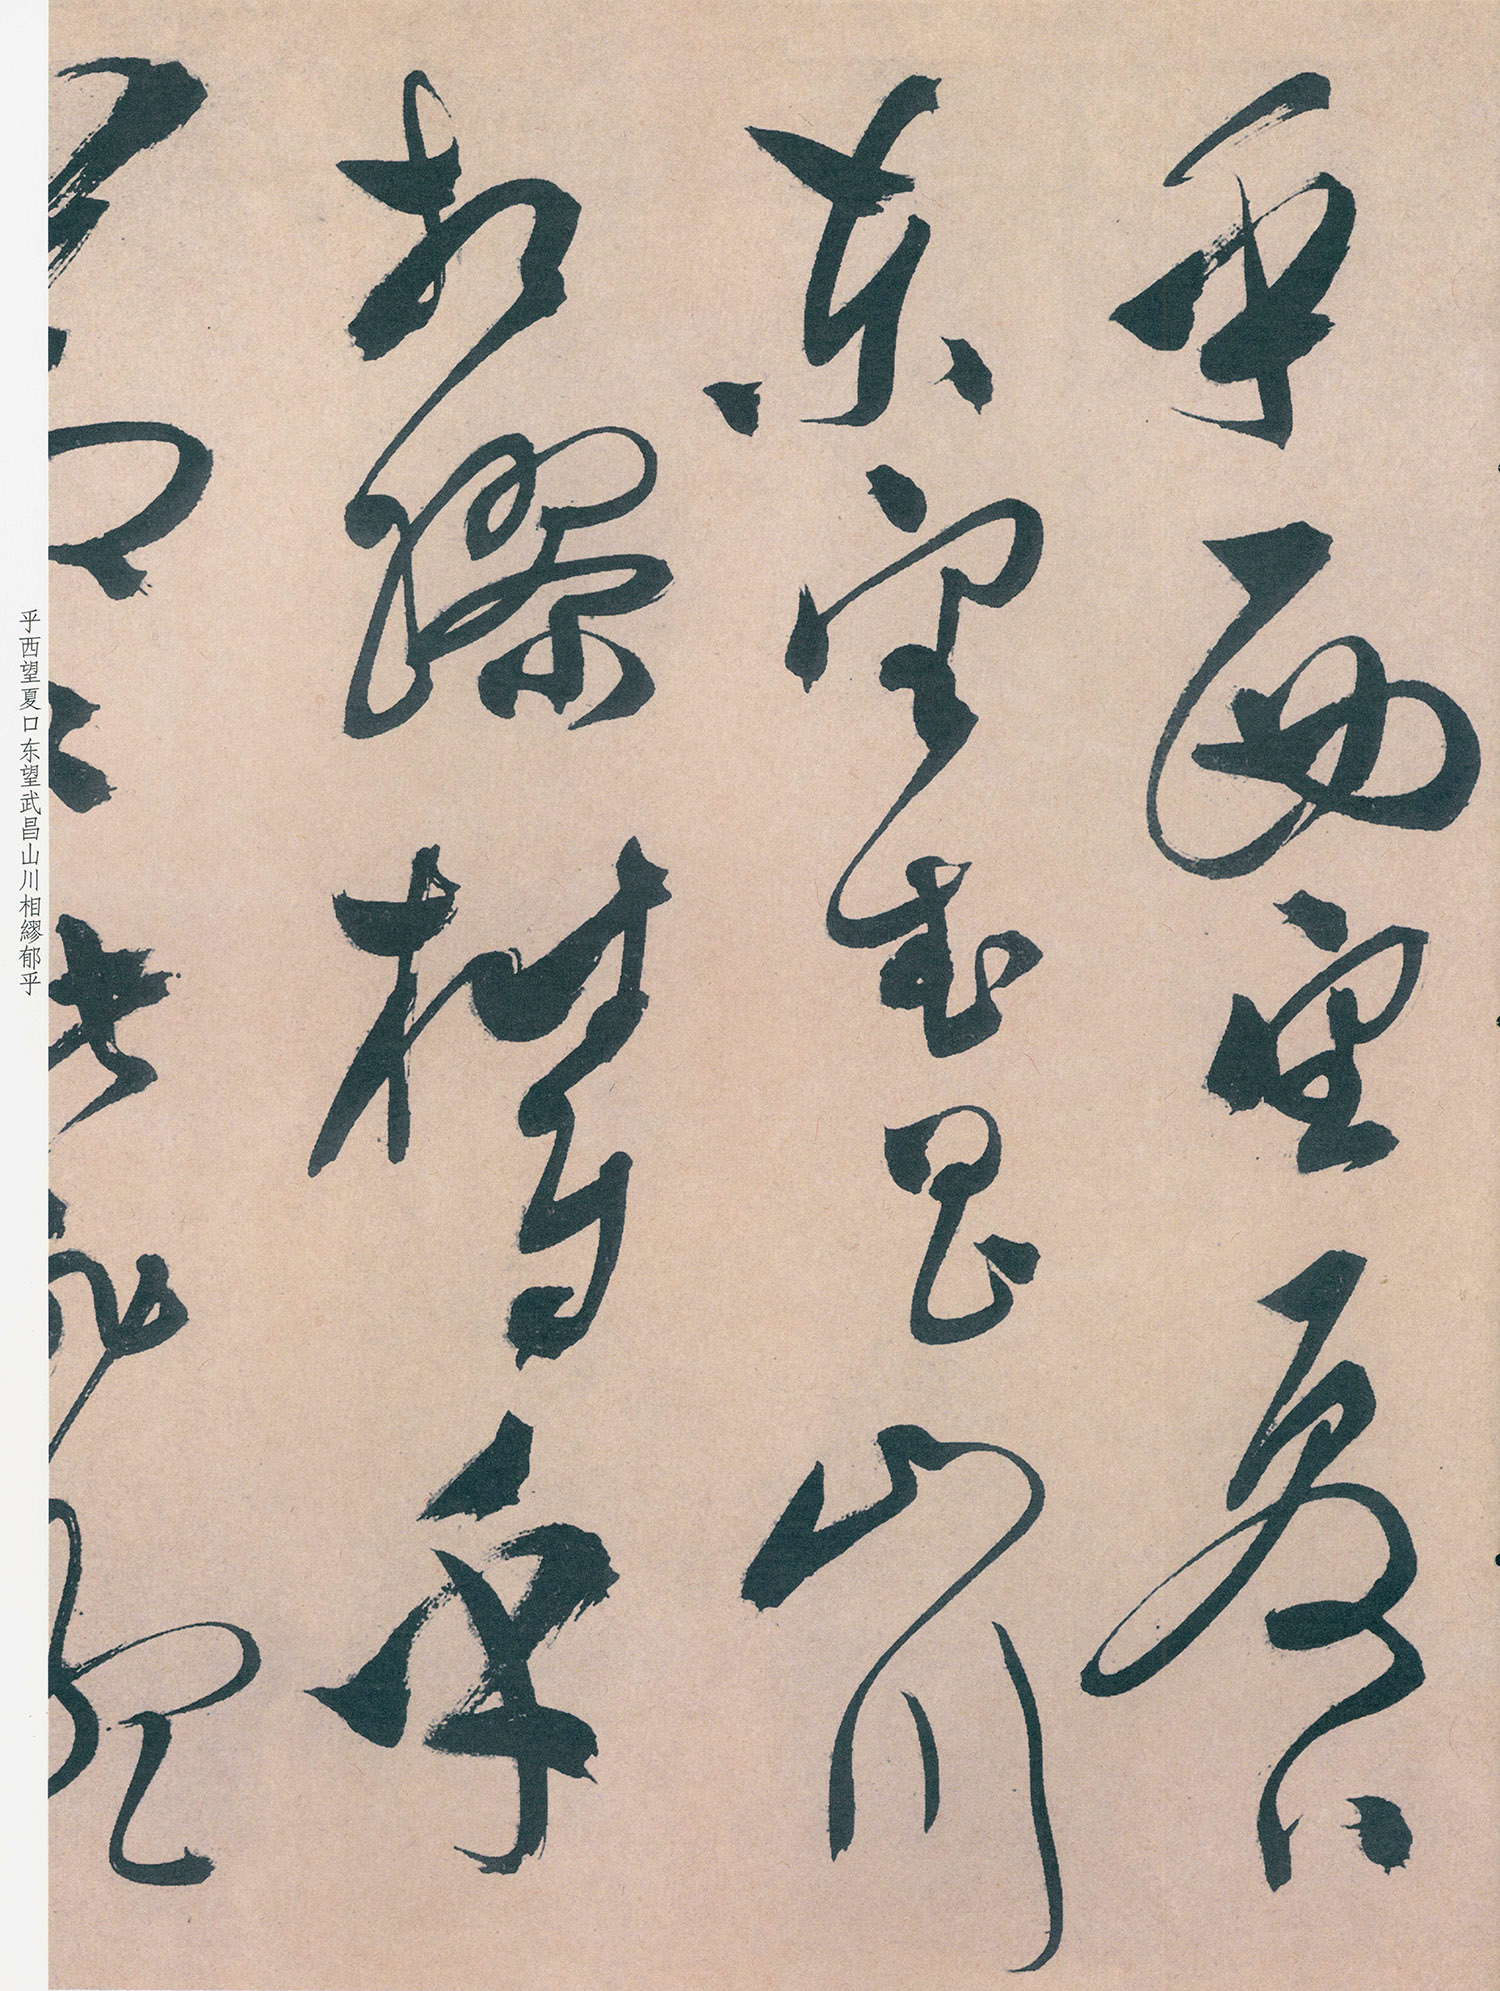 乎西望夏口
東望武昌山川
相繆鬱乎
乎西望夏口东望武昌山川相繆郁乎